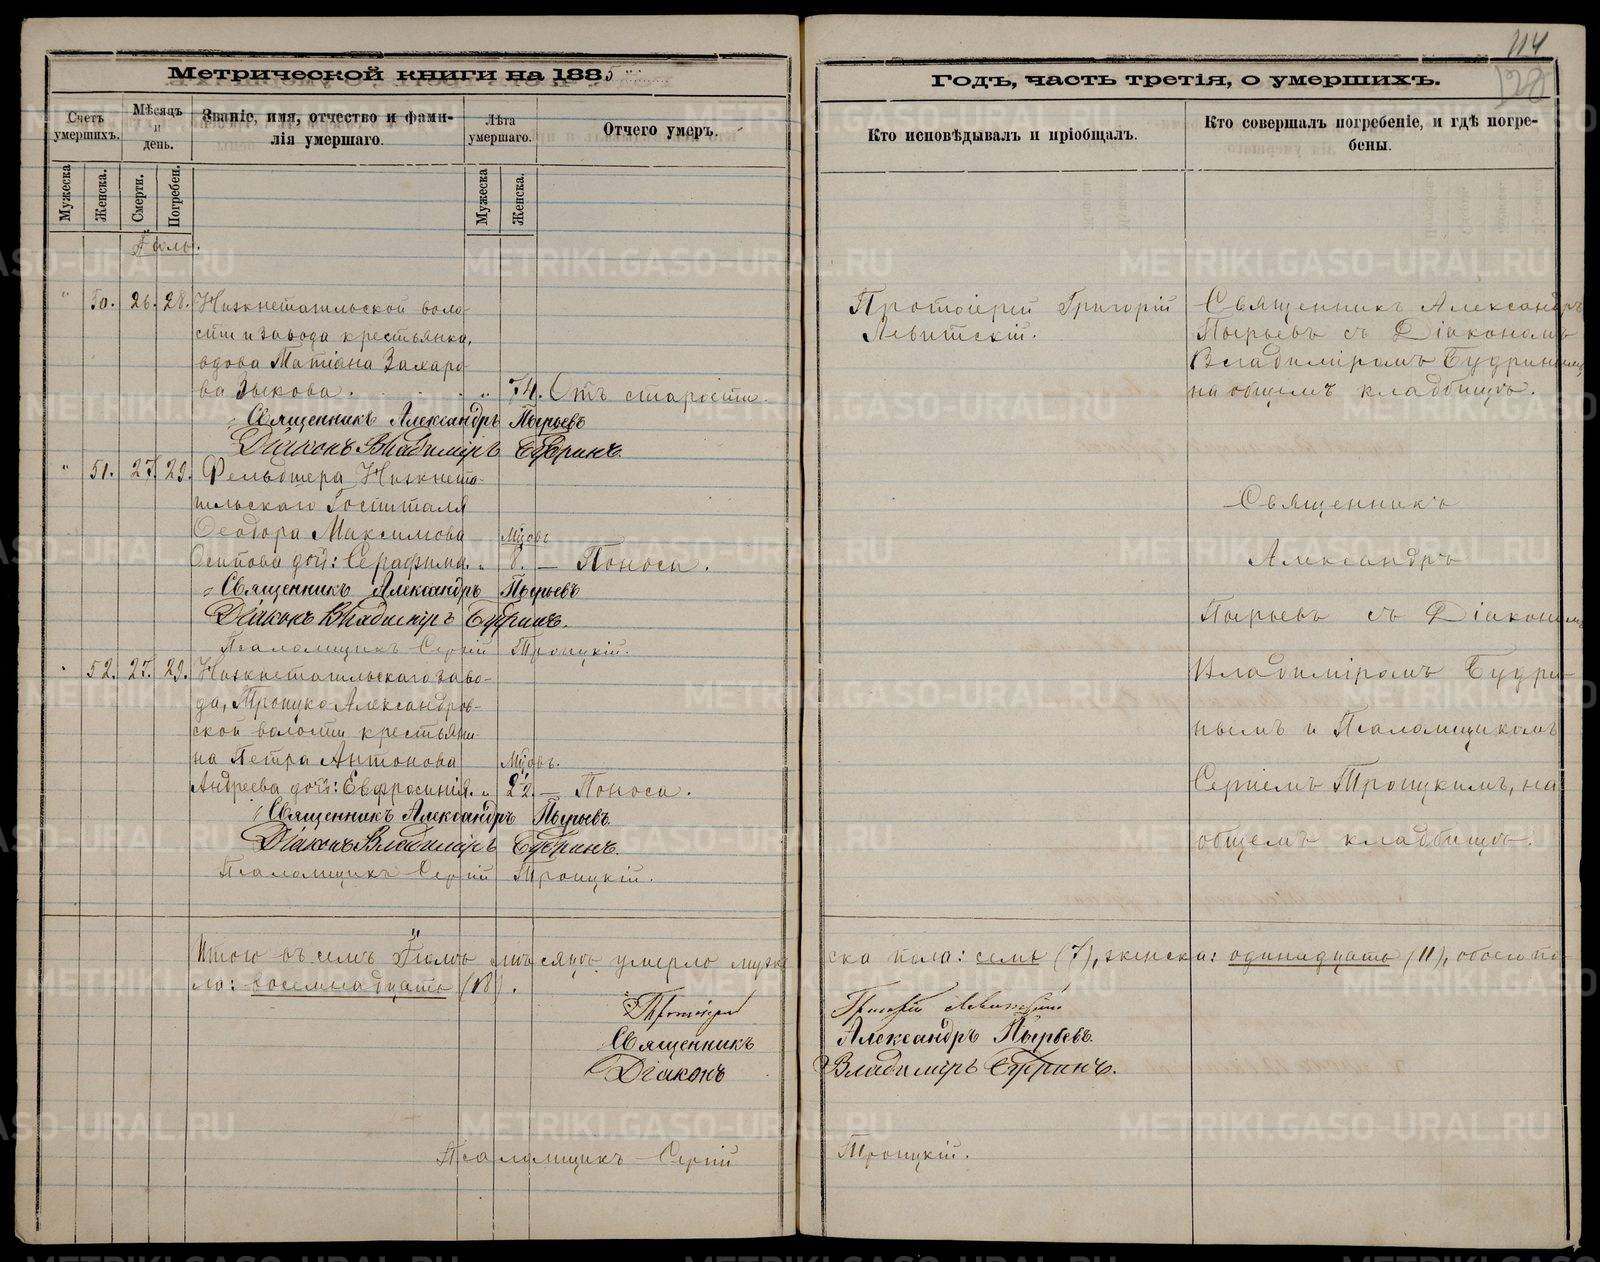 114
Метрической книги на 1885
Годъ, часть третія, о умершихъ.
Счетъ умершихъ.
Мѣсяцъ и день.
Званіе, имя, отчество и фами-
лія умершаго.
Лѣта умершаго.
Отчего умеръ.
Кто исповѣдывалъ и пріобщалъ.
Кто совершалъ погребеніе, и гдѣ погре-
бены.
Мужеска
Женска.
Смерти.
Погребен.
Мужеска
Женска.
Іюль.
" 50. 26. 28. Нижнетагильской воло-
сти и завода крестьянка,
вдова Татіана Захаро-
ва Зыкова. " 74. Отъ старости.
Священникъ Александръ Пырьевъ
Діаконъ Владиміръ Будринъ.
Протоіерей Григорій
Левитскій.
Священникъ Александръ
Пырьевъ съ Діакономъ
Владиміромъ Будринымъ
на общемъ кладбищѣ.
" 51. 27. 29. Фельдшера Нижнета-
гильскаго Госпиталя
Ѳеодора Максимова Мѣсяц.
Осипова дочь: Серафима. " 8. — Поноса.
Священникъ Александръ Пырьевъ
Діаконъ Владиміръ Будринъ.
Псаломщикъ Сергій Троицкій.
" 52. 27. 29. Нижнетагильскаго заво-
да, Троицко-Александров-
ской волости крестьяни-
на Петра Антонова Мѣсяц.
Андреева дочь: Евфросинія. " 2½. — Поноса.
Священникъ Александръ Пырьевъ.
Діаконъ Владиміръ Будринъ.
Псаломщикъ Сергій Троицкій.
Священникъ
Александръ
Пырьевъ съ Діакономъ
Владиміромъ Будри-
нымъ и Псаломщикомъ
Сергіемъ Троицкимъ, на
общемъ кладбищѣ.
Итого въ семъ Іюлѣ мѣсяцѣ умерло муже-
ска пола: семь (7), женска: одинадцать (11), обоего по-
ла: восемнадцать (18).
Протоіерей Григорій Левитскій
Священникъ Александръ Пырьевъ.
Діаконъ Владиміръ Будринъ.
Псаломщикъ Сергій Троицкій.
METRIKI.GASO-URAL.RU